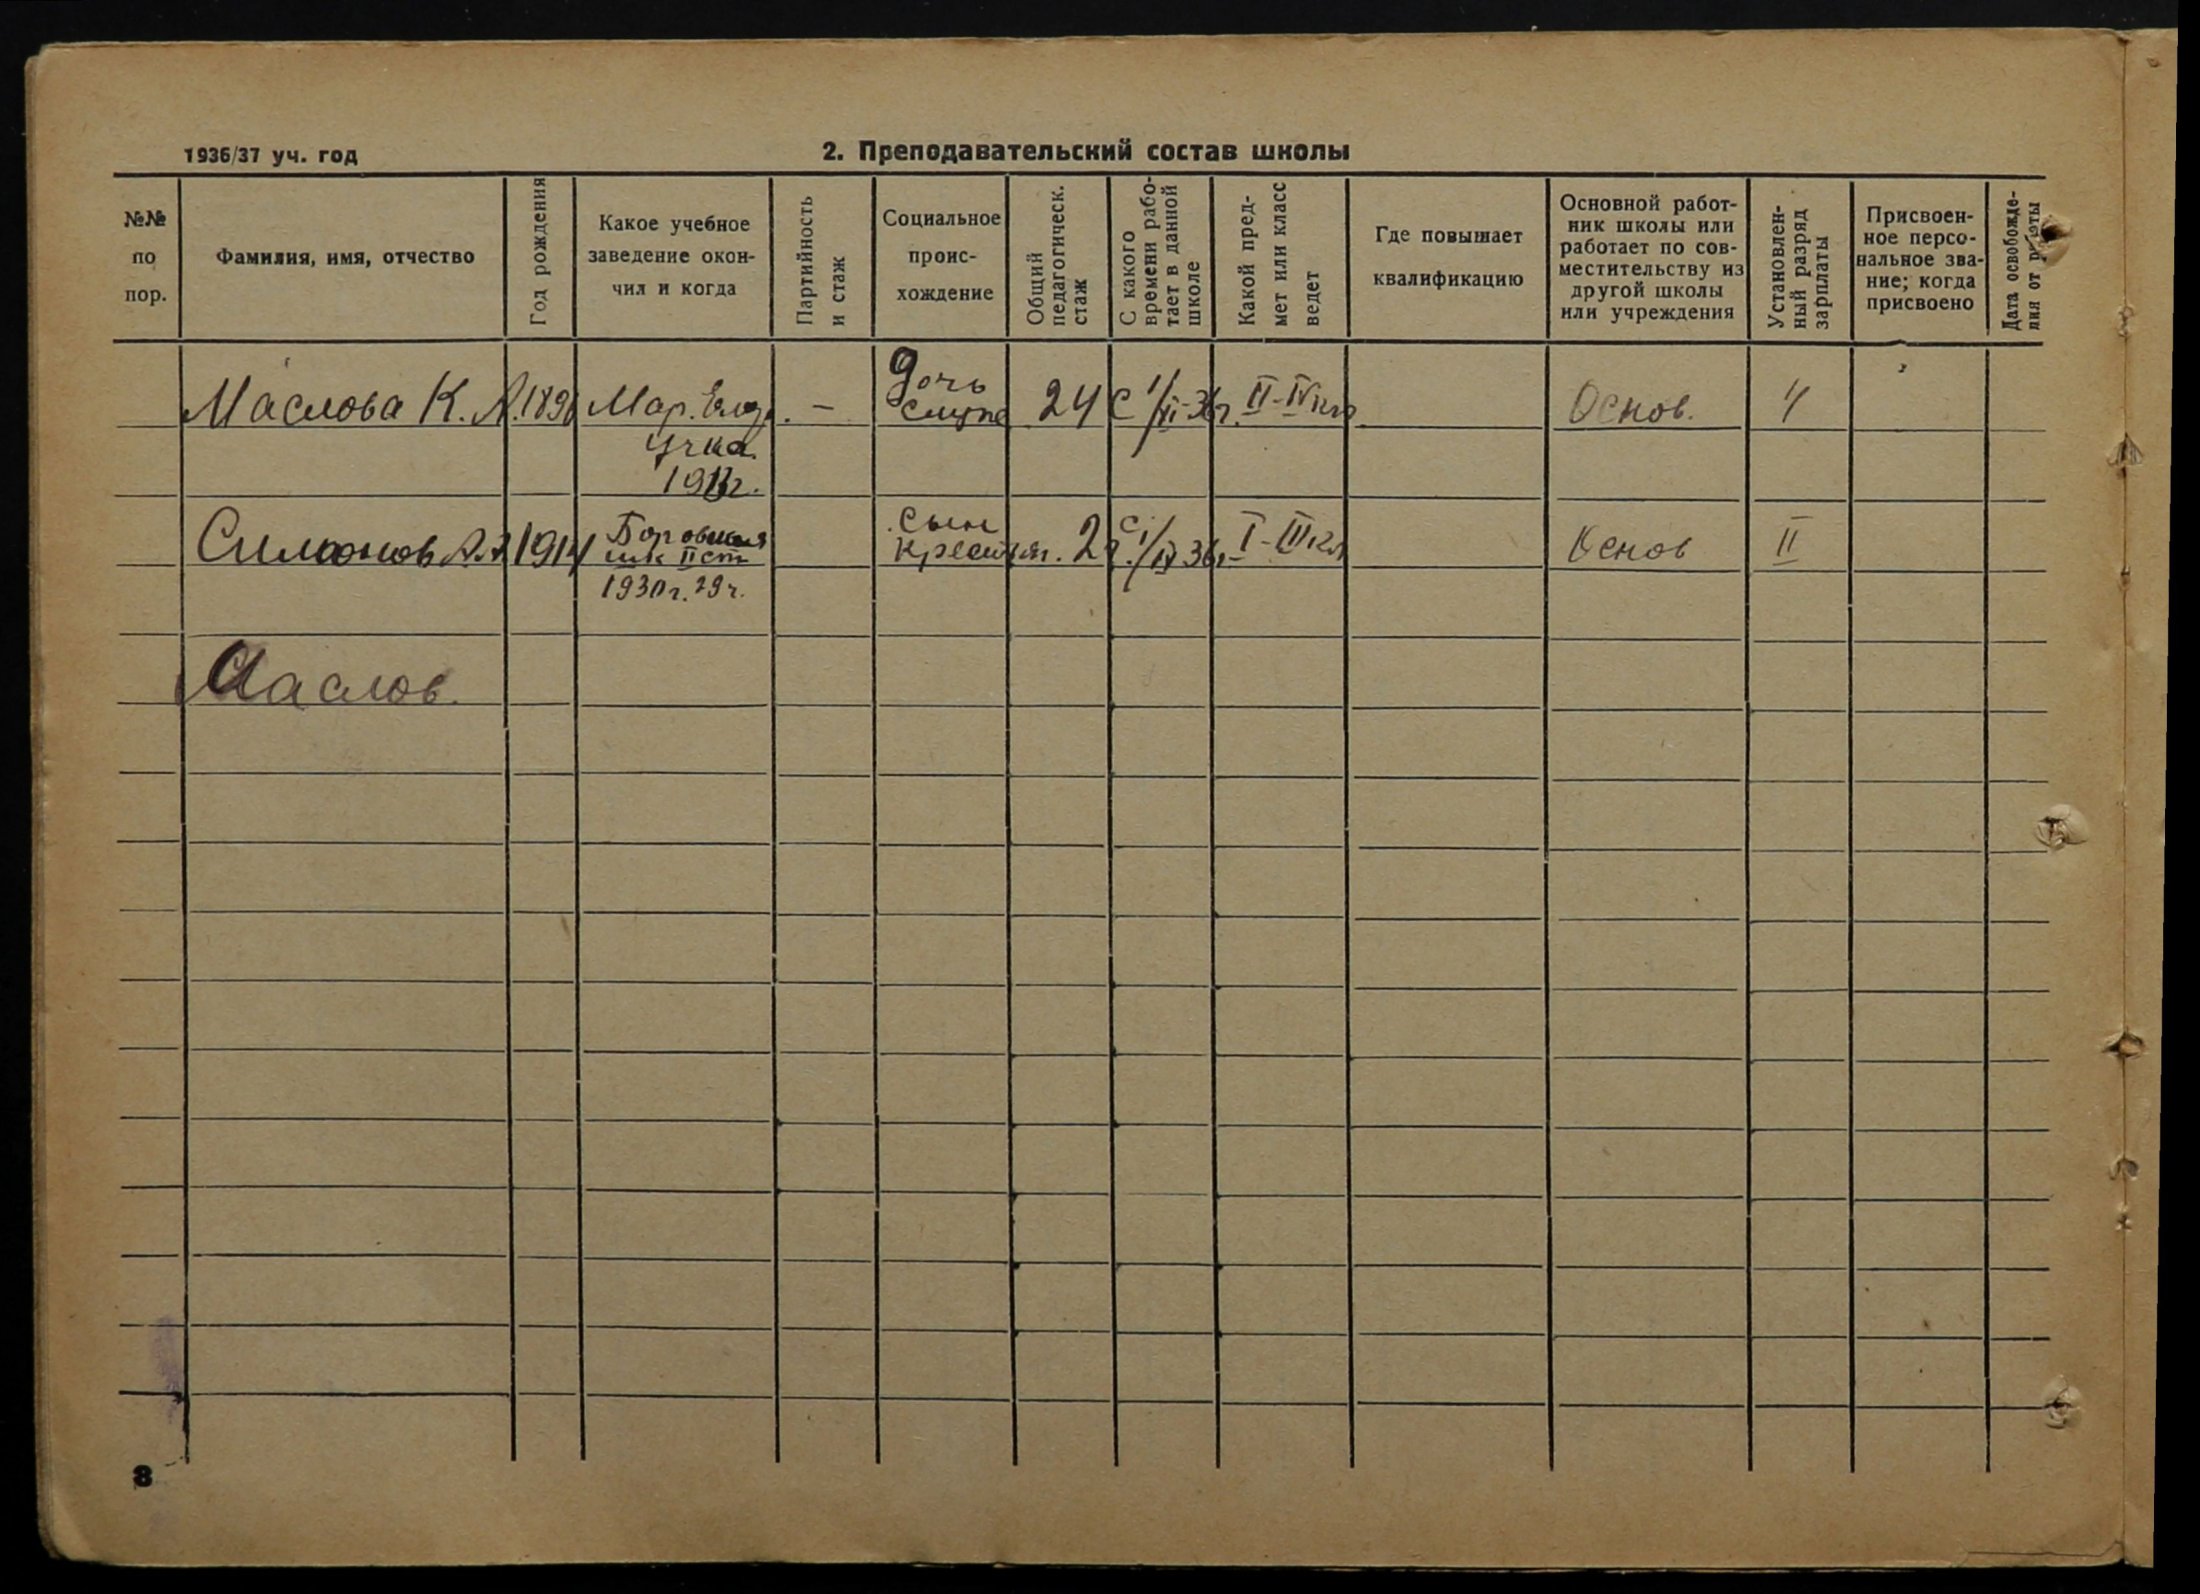 1936/37 уч. год
2. Преподавательский состав школы
№№ по пор.
Фамилия, имя, отчество
Год рождения
Какое учебное заведение окон-
чил и когда
Партийность
и стаж
Социальное
проис-
хождение
Общий
педагогическ.
стаж
С какого
времени рабо-
тает в данной
школе
Какой пред-
мет или класс
ведет
Где повышает
квалификацию
Основной работ-
ник школы или
работает по сов-
местительству из
другой школы
или учреждения
Установлен-
ный разряд
зарплаты
Присвоен-
ное персо-
нальное зва-
ние; когда
присвоено
Дата освобожде-
ния от работы
Маслова К. А. Мар. – Дочь 24 II-IV кл Основ.
1913г.
Симонов 1914 Боровская шк II ст 1930г. сын крестьян. 2г. I-III кл Основ II
Маслов.
8